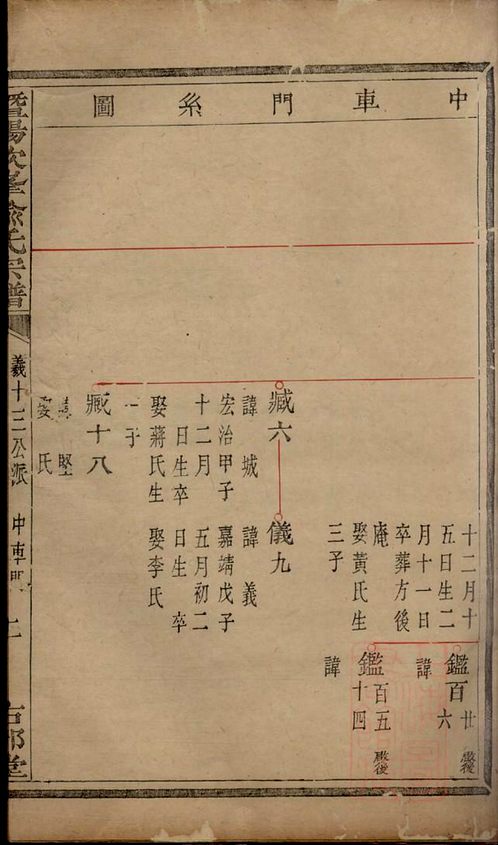 中車門系圖
十二月十
五日生二
月十一日
卒葬方後
庵
娶黃氏生
三子
鑑百廿
六
嚴後
諱
鑑百五
十四
嚴後
諱
臧六
諱城
宏治甲子
十二月
日生卒
娶蔣氏生
一子
儀九
諱義
嘉靖戊子
五月初二
日生 卒
娶李氏
臧十八
諱堅
娶 氏
暨陽次峯俞氏宗譜
義十三公派
中車門